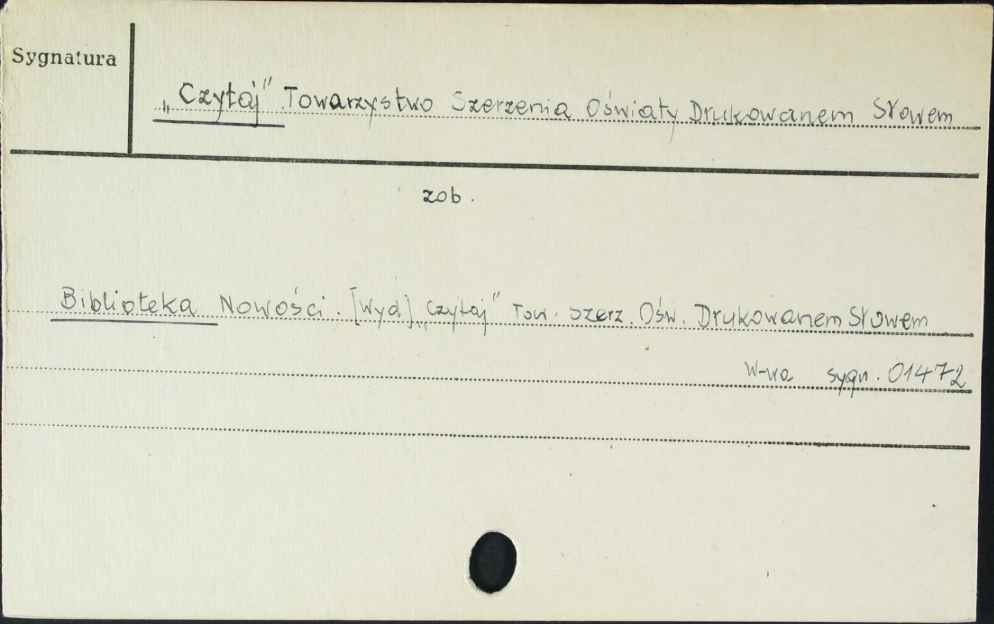 Sygnatura
„Czytaj" Towarzystwo Szerzenia Oświaty Drukowanem Słowem
zob.
Biblioteka Nowości. [Wyd] „Czytaj" Tow. Szerz. Ośw. Drukowanem Słowem
W-wa sygn. 01472